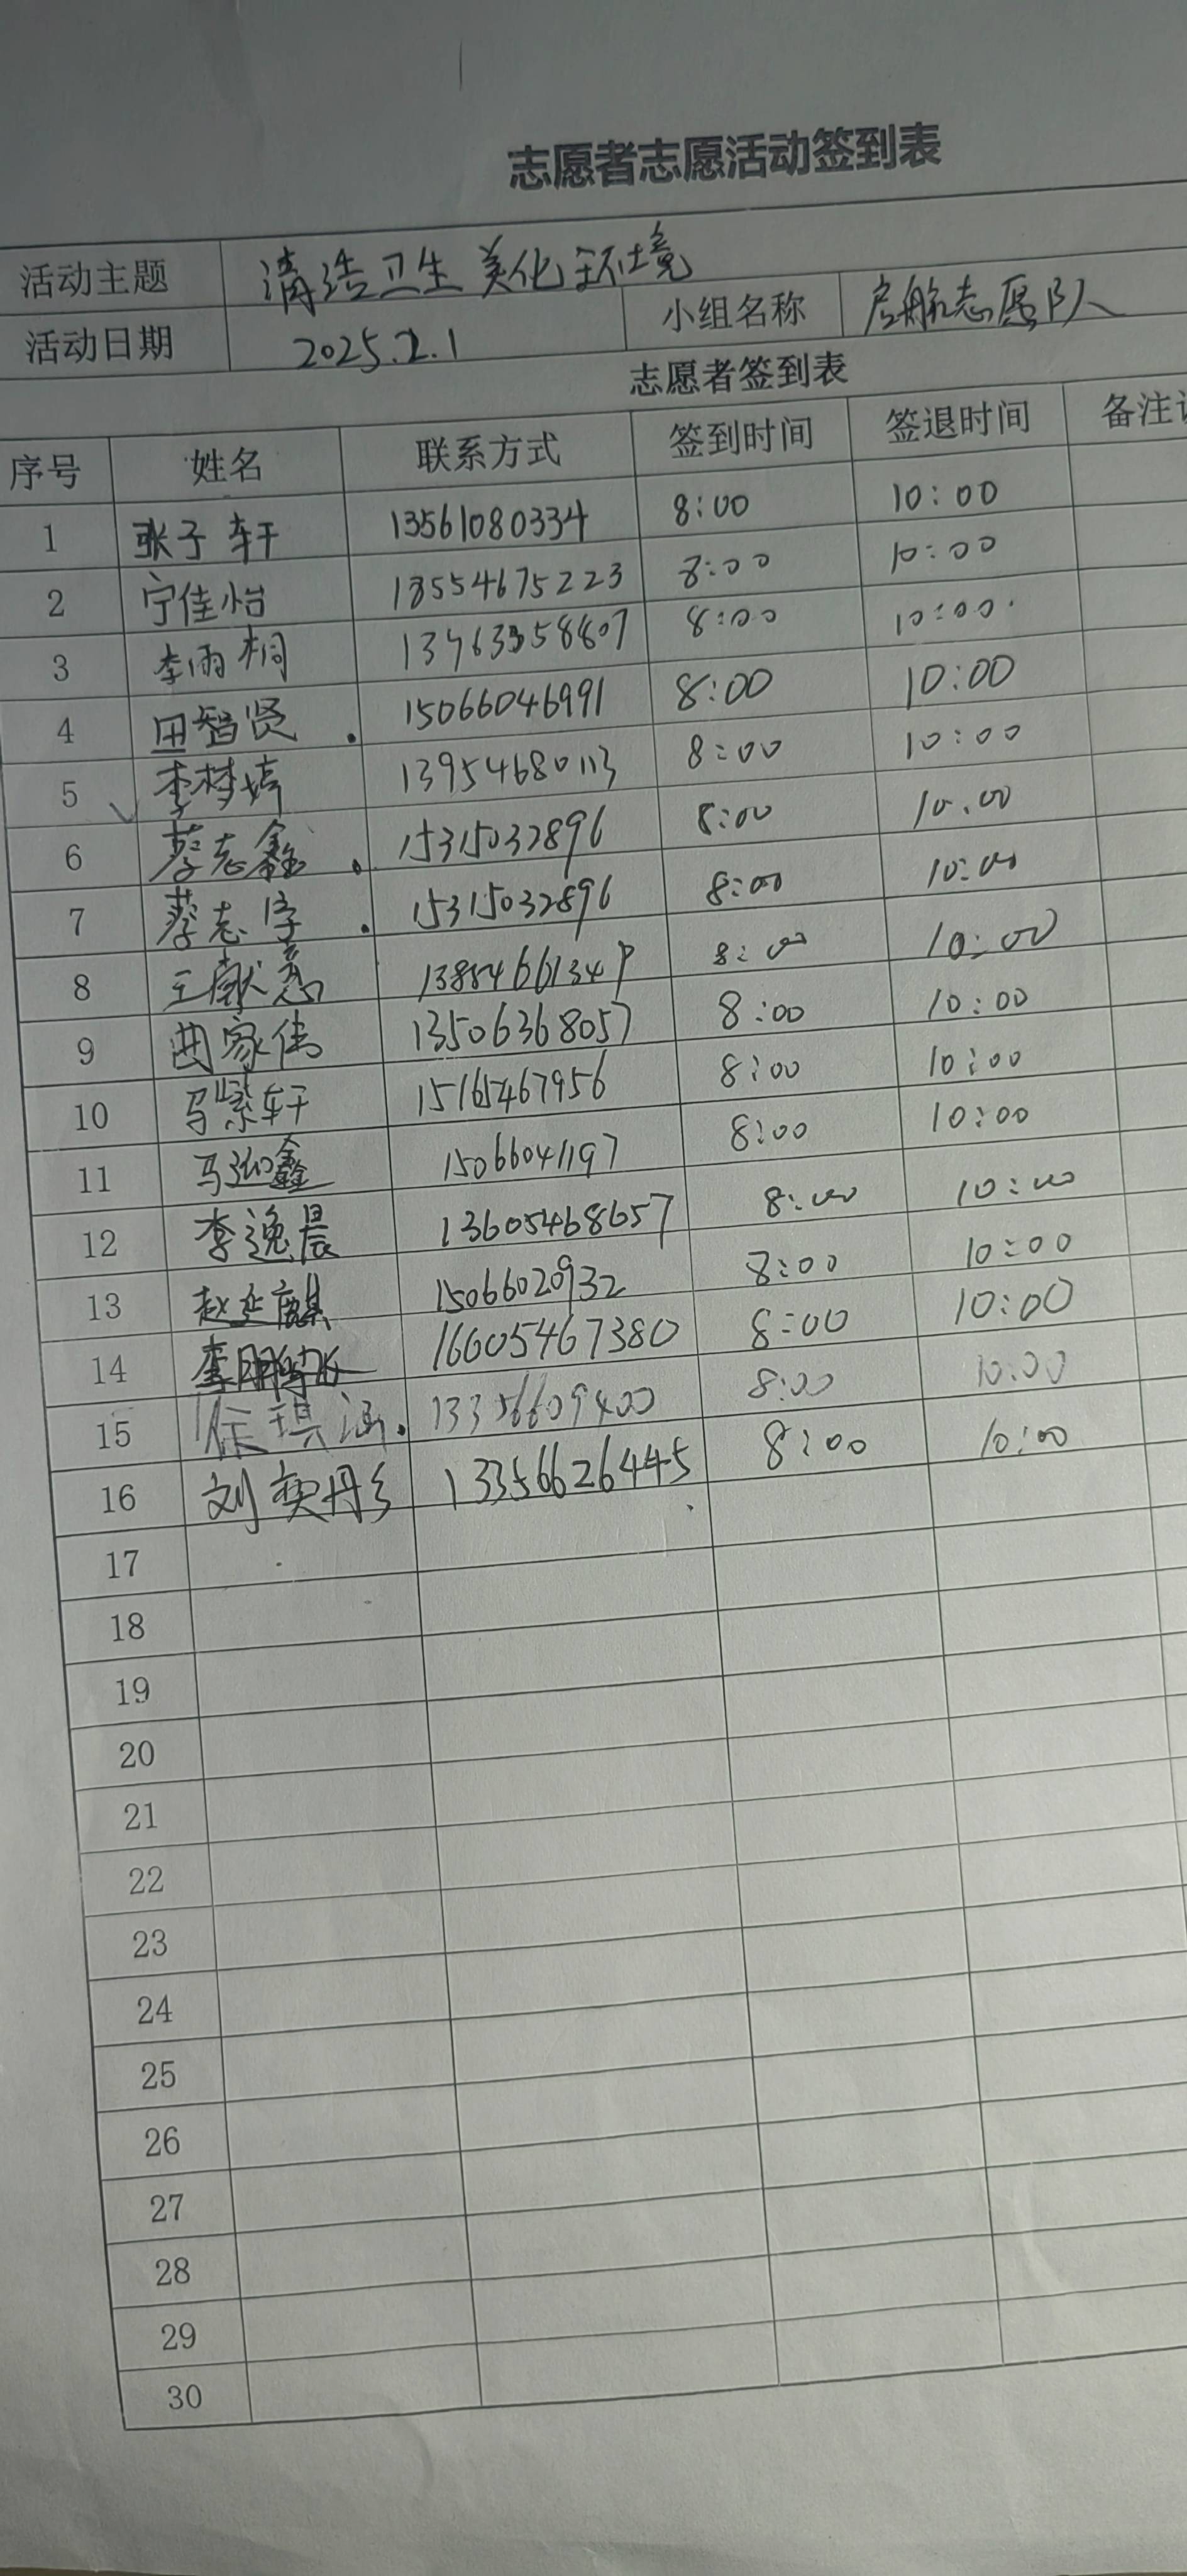 志愿者志愿活动签到表
活动主题 清洁卫生 美化环境
活动日期 2025.2.1 小组名称 启航志愿队
志愿者签到表
序号 姓名 联系方式 签到时间 签退时间 备注
1 张子轩 13561080334 8:00 10:00
2 宁佳怡 13554675223 8:00 10:00
3 李雨桐 8:00 10:00
4 田智贤 15066046991 8:00 10:00
5 李梦婷 13954680113 8:00 10:00
6 蔡志鑫 15315032896 8:00 10:00
7 蔡志 15315032896 8:00 10:00
8 王献 8:00 10:00
9 曲家伟 13506368057 8:00 10:00
10 马紫轩 15165467956 8:00 10:00
11 马 鑫 15066041197 8:00 10:00
12 李逸晨 13605468657 8:00 10:00
13 赵延麒 15066020932 8:00 10:00
14 李 16605467380 8:00 10:00
15 徐琪涵 13356609400 8:00 10:00
16 刘奕彤 13356626445 8:00 10:00
17
18
19
20
21
22
23
24
25
26
27
28
29
30